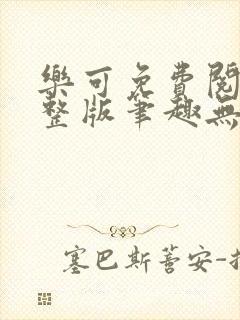 樂可免費閱
整版筆趣無
塞巴斯蒈安-